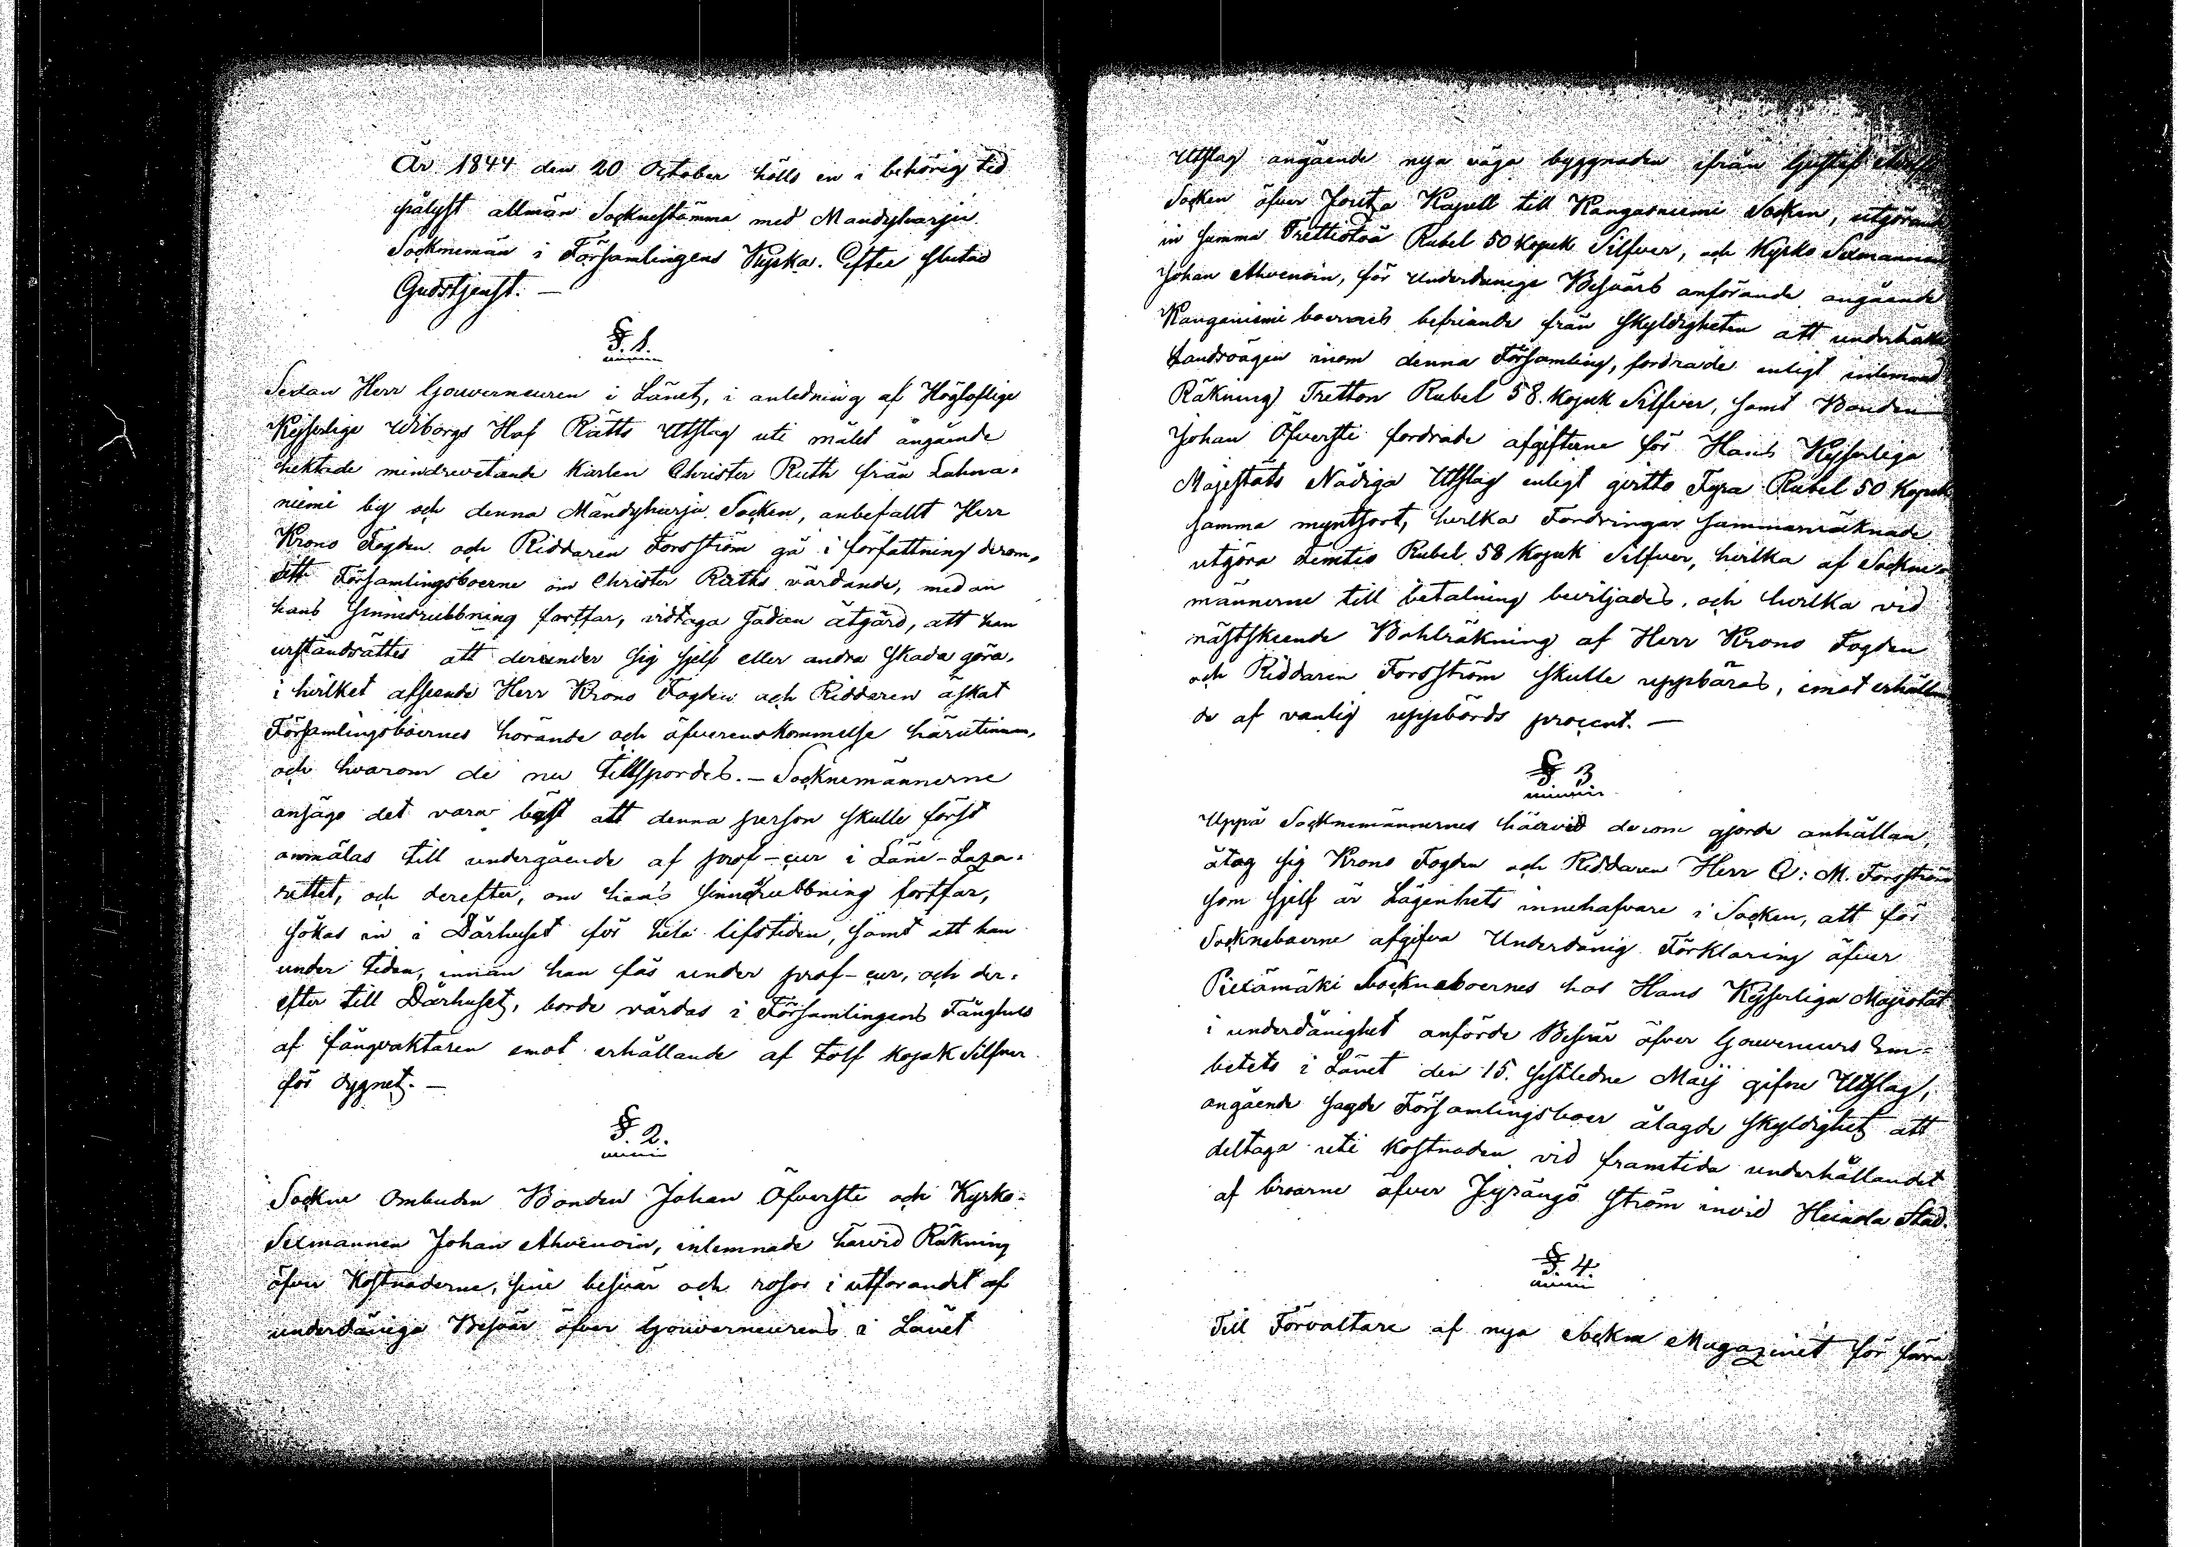 År 1844 den 20 October hölls en i behörig tid
pålyst allmän Socknestämma med Mandyharju
Socknemän i Församlingens Kyrka. Efter slutad
Gudstjenst. —
§. 1.
Sedan Herr Gouverneuren i Länet, i anledning af Högloflige
Kejserlige Wiborgs Hof Rätts Utslag uti målet angående
häktade mindrevetande Karlen Christer Ruth från Lahna-
niemi by och denna Mändyharju Socken, anbefallt Herr
Krono Fogden och Riddaren Forsström gå i författning derom,
att Församlingsboerne om Christer Ruths vårdande, medan
hans sinnesrubbning fortfar, vidtaga sådan åtgärd, att han
urståndsättes att derunder sig sjelf eller andra skada göra,
i hvilket afseende Herr Krono Fogden och Riddaren äskat
Församlingsboernes hörande och öfverenskommelse härutinnan,
och hvarom de nu tillspordes. — Socknemännerne
ansågo det vara bäst att denna person skulle först
anmälas till undergående af prof-cur i Läns-Laza-
rettet, och derefter, om hans sinnesrubbning fortfar,
sökas in i Dårhuset för hela lifstiden, samt att han
under tiden, innan han fås under prof-cur, och der-
efter till Dårhuset, borde vårdas i Församlingens Fånghus
af fångvaktaren emot erhållande af Tolf kopek Silfver
för dygnet. —
§. 2.
Sockne Ombuden Bonden Johan Öfverste och Kyrko-
Sexmannen Johan Ahvenain, inlemnade härvid Räkning
öfver Kostnaderne, sine besvär och resor i utförandet af
underdåniga Besvär öfver Gouverneurens i Länet
Utslag angående nya väga byggnaden ifrån Gustaf Adolfs
Socken öfver Joutsa Kapell till Kangasniemi Socken, utgörande
in summa Trettiotvå Rubel 50 kopek Silfver, och Kyrko Sexmannen
Johan Ahvenain, för Underdånige Besvärs anförande angående
Kanganiemi boernes befriande från skyldigheten att underhålla
Landsvägen inom denna Församling, fordrade enligt inlemnad
Räkning Tretton Rubel 58. kopek Silfver, samt Bonden
Johan Öfverste fordrade afgifterne för Hans Kejserliga
Majestäts Nådiga Utslag enligt qvitto Fyra Rubel 50 Kopek
samma myntsort, hvilka Fordringar sammanräknade
utgöra Femtio Rubel 58 kopek Silfver, hvilka af Sockne
männerne till betalning beviljades, och hvilka vid
nästskeende Bohlräkning af Herr Krono Fogden
och Riddaren Forsström skulle uppbäras, emot erhållan
de af vanlig uppbörds procent. —
§. 3
Uppå Socknemännernes härvid derom gjorde anhållan,
åtog sig Krono Fogden och Riddaren Herr Q: M. Forsström
som sjelf är Lägenhets innehafvare i Socken, att för
Sockneboerne afgifva Underdånig Förklaring öfver
Piexämäki Sockneboernes hos Hans Kejserliga Majestät
i underdånighet anförde Besvär öfver Gouverneurs Em-
betets i Länet den 15. sistledne Maij gifne Utslag,
angående sagde Församlingsboer ålagde skyldighet att
deltaga uti kostnaden vid framtida underhållandet
af broarne öfver Jyrängö ström invid Heinola Stad.
§. 4
Till Förvaltare af nya Sockne Magazinet för